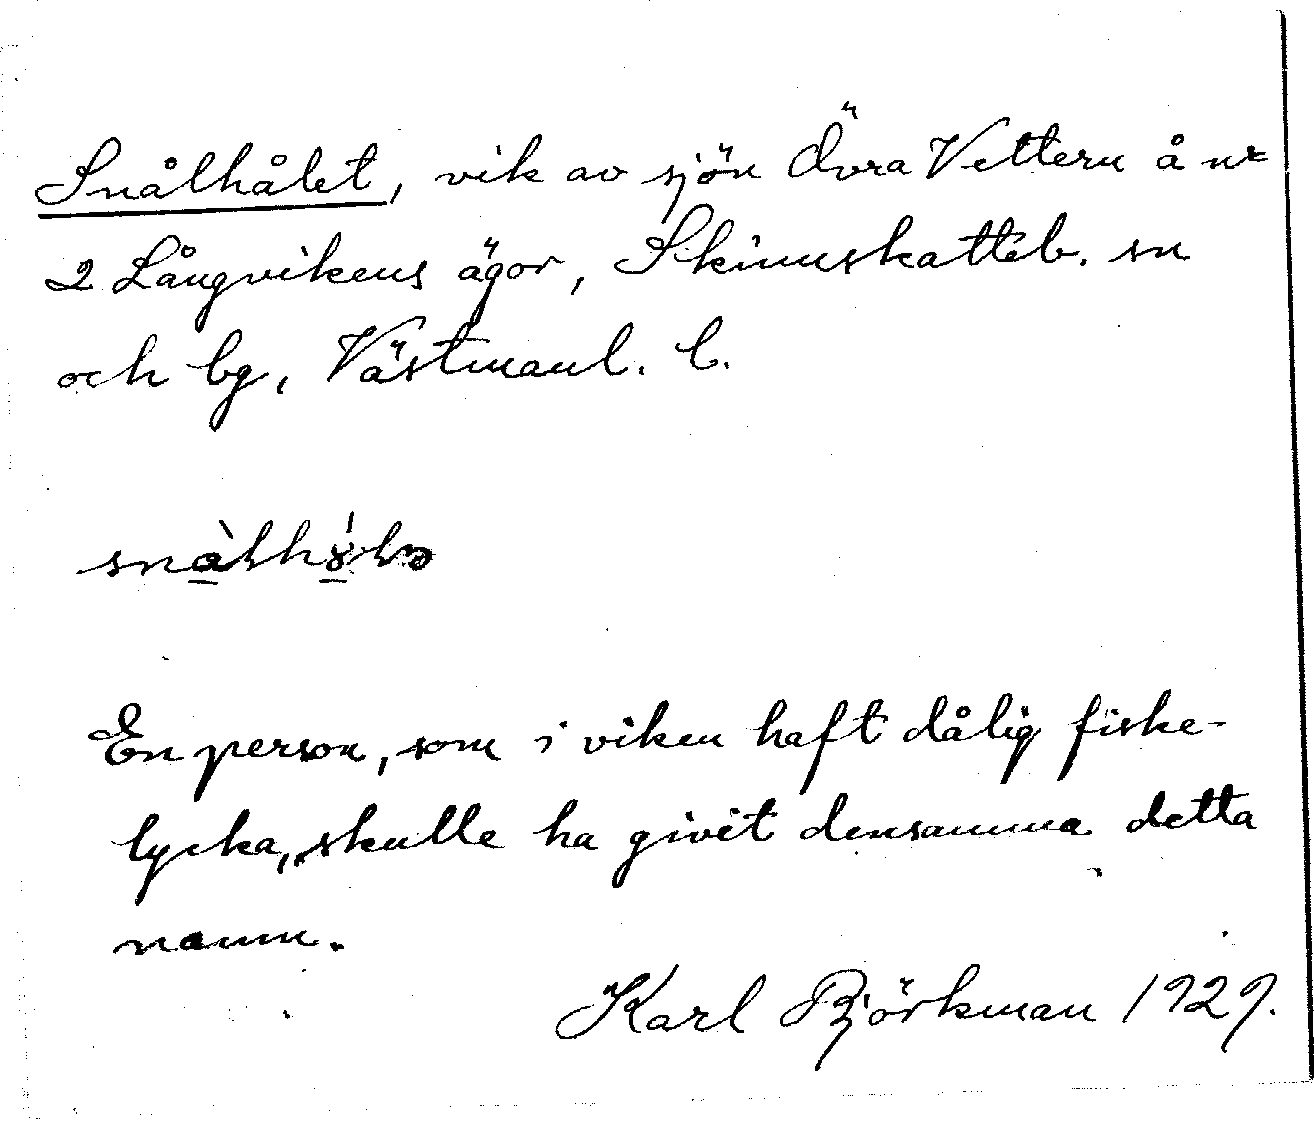 Snålhålet, vik av sjön Övra Vettern å nr
2 Långvikens ägor, Skinnskatteb. sn
och bg, Västmanl. l.
En person, som i viken haft dålig fiske-
lycka, skulle ha givit densamma detta
namn.
Karl Björkman 1929.